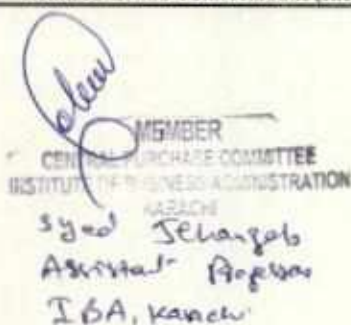 MEMBER
CENTRAL PURCHASE COMMITTEE
INSTITUTE OF BUSINESS ADMINISTRATION
KARACHI
Syed Jehangeb
Assistant Professor
IBA, Karachi